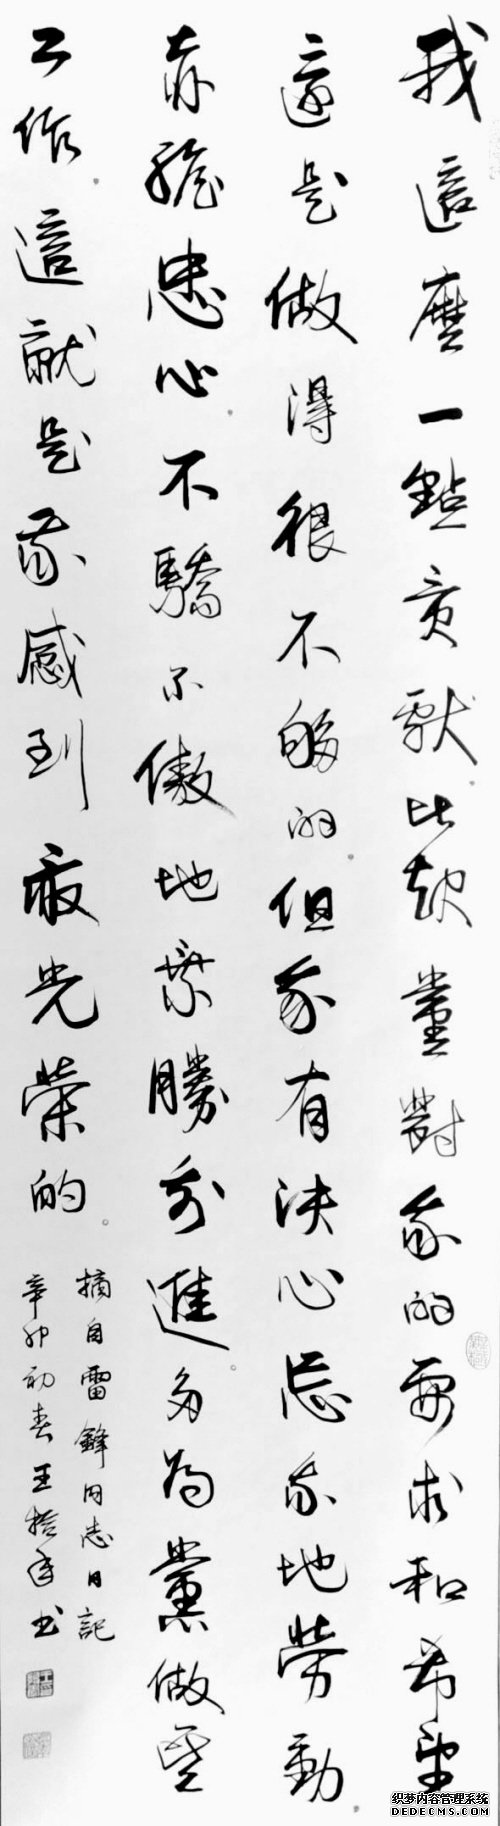 我這麽一點貢獻比起黨對我的要求和希望
還是做得很不夠的但我有決心忘我地勞動
赤膽忠心不驕不傲地乘勝前進多為黨做些
工作這就是我感到最光榮的
摘自雷鋒同志日記
辛卯初春王書
织梦内容管理系统
DEDECMS.COM